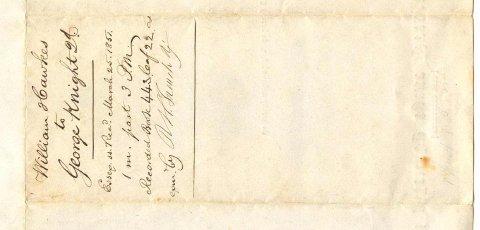 William Hawkes
to
George Knight 2d
Essex ss. Recd. March 25. 1851.
1 m. past 3 P.M.
Recorded Book 443 leaf 22 &
exm. by R. H. French Rg